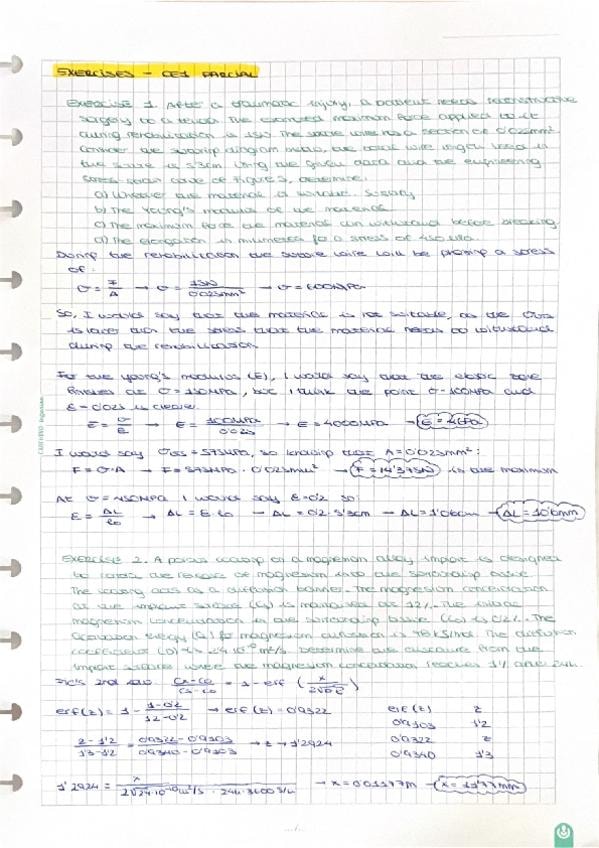 EXERCISES - CE1 PARCIAL
Exercise 1. After a traumatic injury, a patient needs reconstructive
surgery to a tendon. The estimated maximum force applied to it
during rehabilitation is 15N. The suture wire has a section of 0'025mm²
Consider the suturing diagram below, the total wire length used in
the suture is 5'3cm. Using the given data and the engineering
stress-strain curve of Figure 5, determine:
a) Whether the material is suitable
b) The Young's modulus of the material
c) The maximum force the material can withstand before breaking
d) The elongation in milimeters for a stress of 450 MPa.
During the rehabilitation the suture wire will be phasing a stress
of:
σ = F/A → σ = 15N/0'025mm² → σ = 600MPa
So, I would say that the material is not suitable, as the
is lower than the stress that the material needs to withstand
during the rehabilitation
For the young's modulus (E), I would say that the elastic zone
finishes at σ = 150MPa, but I think the point σ = 100MPa and
ε = 0'025 is
E = σ/ε → E = 100MPa/0'025 → E = 4000MPa → E = 4GPa
I would say = 575MPa, so knowing that A = 0'025mm²:
F = σ·A → F = 575MPa · 0'025mm² → F = 14'375N is the maximum
At σ = 450MPa I would say ε = 0'2 so:
ε = ΔL/l₀ → ΔL = ε·l₀ → ΔL = 0'2 · 5'3cm → ΔL = 1'06cm → ΔL = 10'6mm
Exercise 2. A porous coating on a magnesium alloy implant is designed
to control the release of magnesium into the surrounding tissue.
The coating acts as a diffusion barrier. The magnesium concentration
at the implant surface (Cs) is maintained at 12%. The initial
magnesium concentration in the surrounding tissue (C₀) is 0'2%. The
activation energy (Q) for magnesium diffusion is 48 kJ/mol. The diffusion
coefficient (D) is m²/s. Determine the distance from the
implant surface where the magnesium concentration reaches 1% after 24h.
Fick's 2nd law: Cx-C₀/Cs-C₀ = 1 - erf (x/2√Dt)
erf(z) = 1 - 1-0'2/12-0'2 → erf(z) = 0'9322
erf(z) z
0'9103 1'2
0'9322 z
0'9340 1'3
z-1'2/1'3-1'2 = 0'9322-0'9103/0'9340-0'9103 → z → 1'2924
1'2924 = x/ → x = 0'01177m → x = 11'77mm
.../...